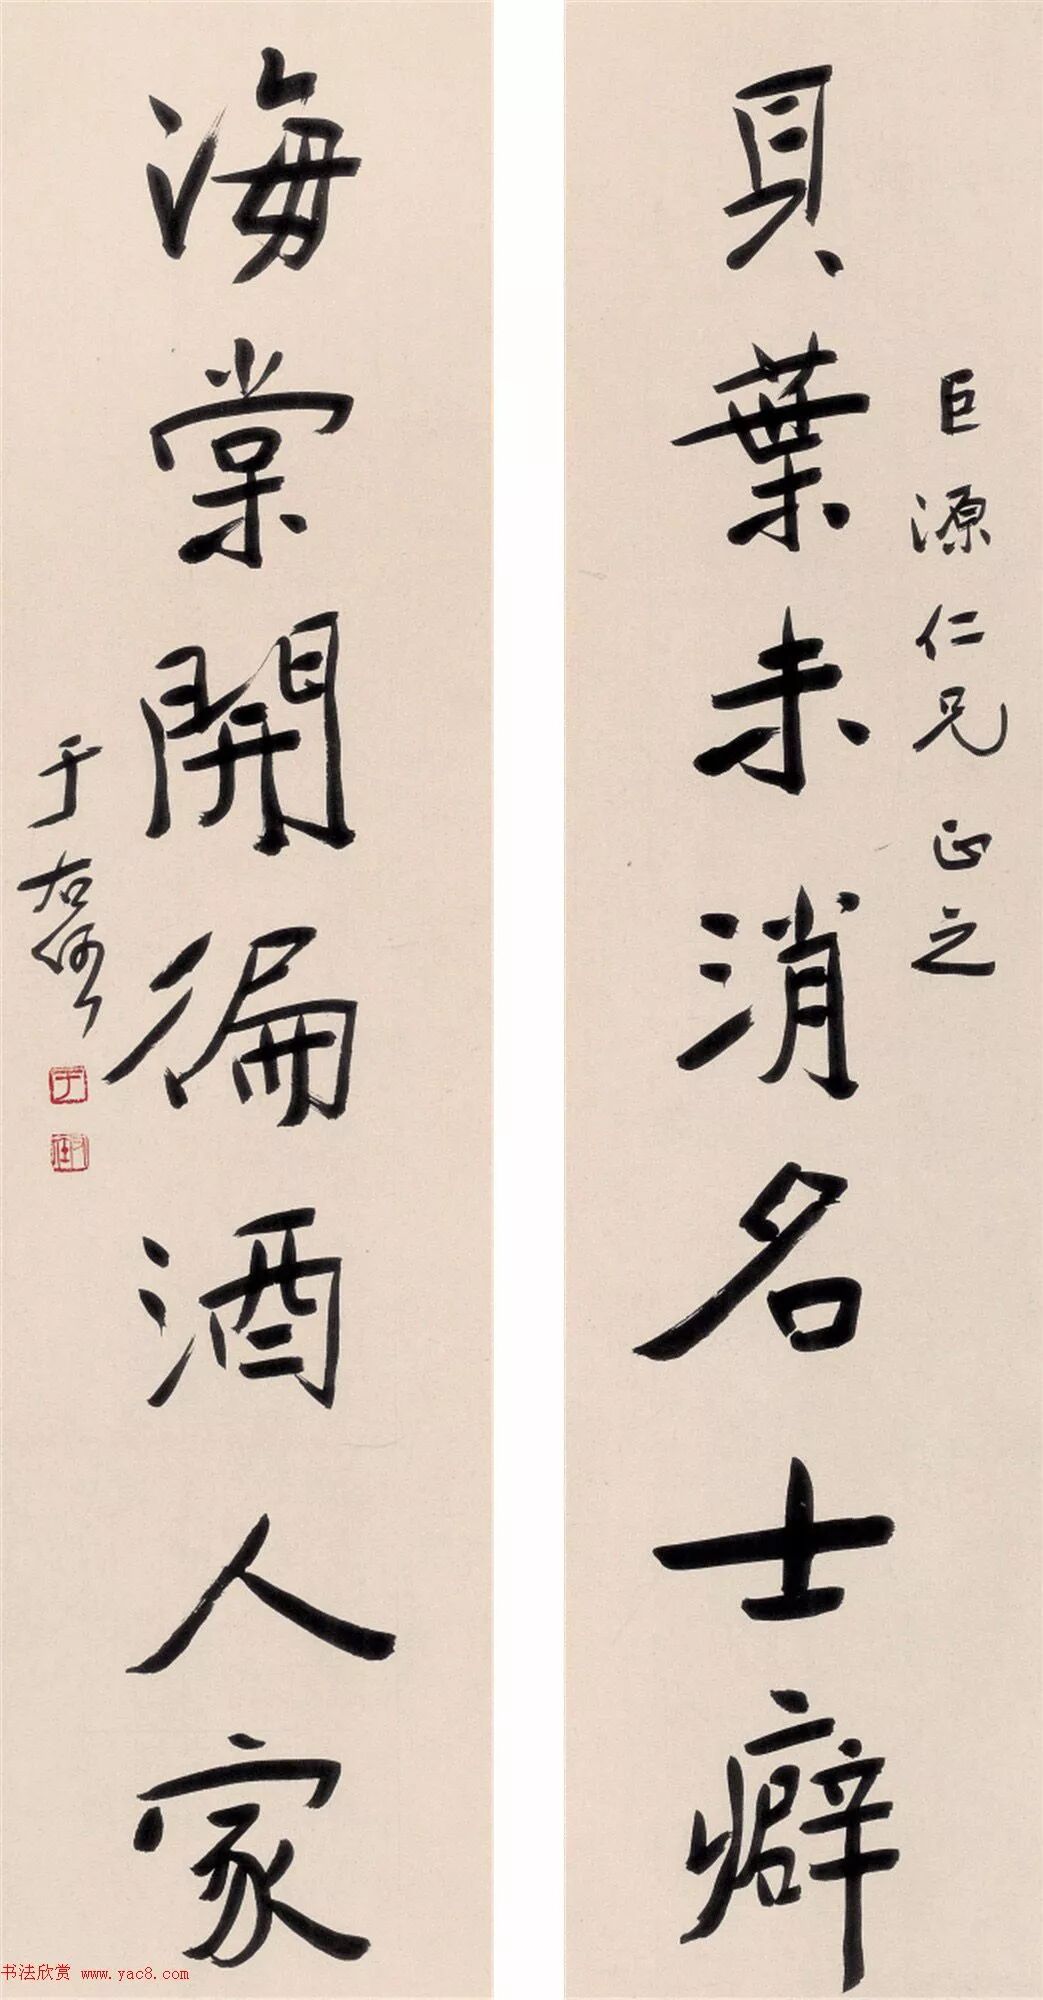 巨源仁兄正之
貝葉未消名士癖
海棠開徧酒人家
于
于
书法欣赏 www.yac8.com